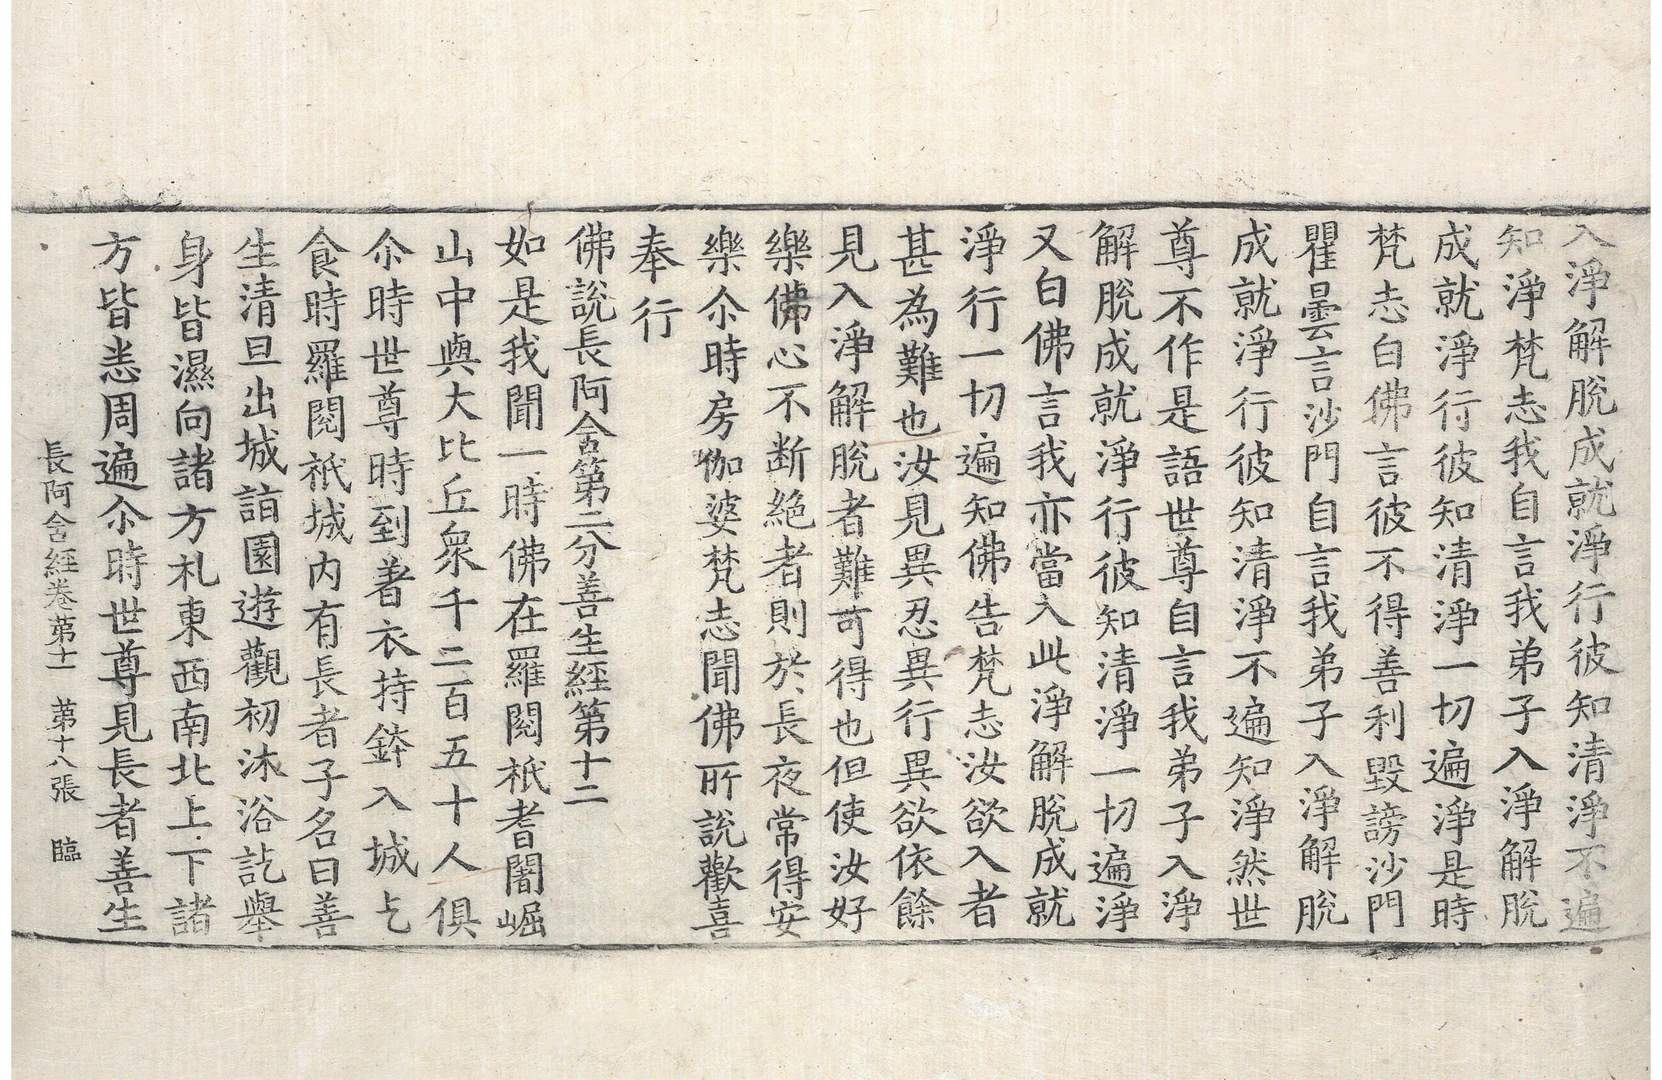 入淨解脫成就淨行彼知清淨不遍
知淨梵志我自言我弟子入淨解脫
成就淨行彼知清淨一切遍淨是時
梵志白佛言彼不得善利毀謗沙門
瞿曇言沙門自言我弟子入淨解脫
成就淨行彼知清淨不遍知淨然世
尊不作是語世尊自言我弟子入淨
解脫成就淨行彼知清淨一切遍淨
又白佛言我亦當入此淨解脫成就
淨行一切遍知佛告梵志汝欲入者
甚為難也汝見異忍異行異欲依餘
見入淨解脫者難可得也但使汝好
樂佛心不断絕者則於長夜常得安
樂尒時房伽婆梵志聞佛所說歡喜
奉行
佛說長阿含第二分善生經第十二
如是我聞一時佛在羅閱祇耆闍崛
山中與大比丘衆千二百五十人俱
尒時世尊時到著衣持鉢入城乞
食時羅閱祇城內有長者子名曰善
生清旦出城詣園遊觀初沐浴訖舉
身皆濕向諸方礼東西南北上下諸
方皆悉周遍尒時世尊見長者善生
長阿含經卷第十一 第十八張 臨